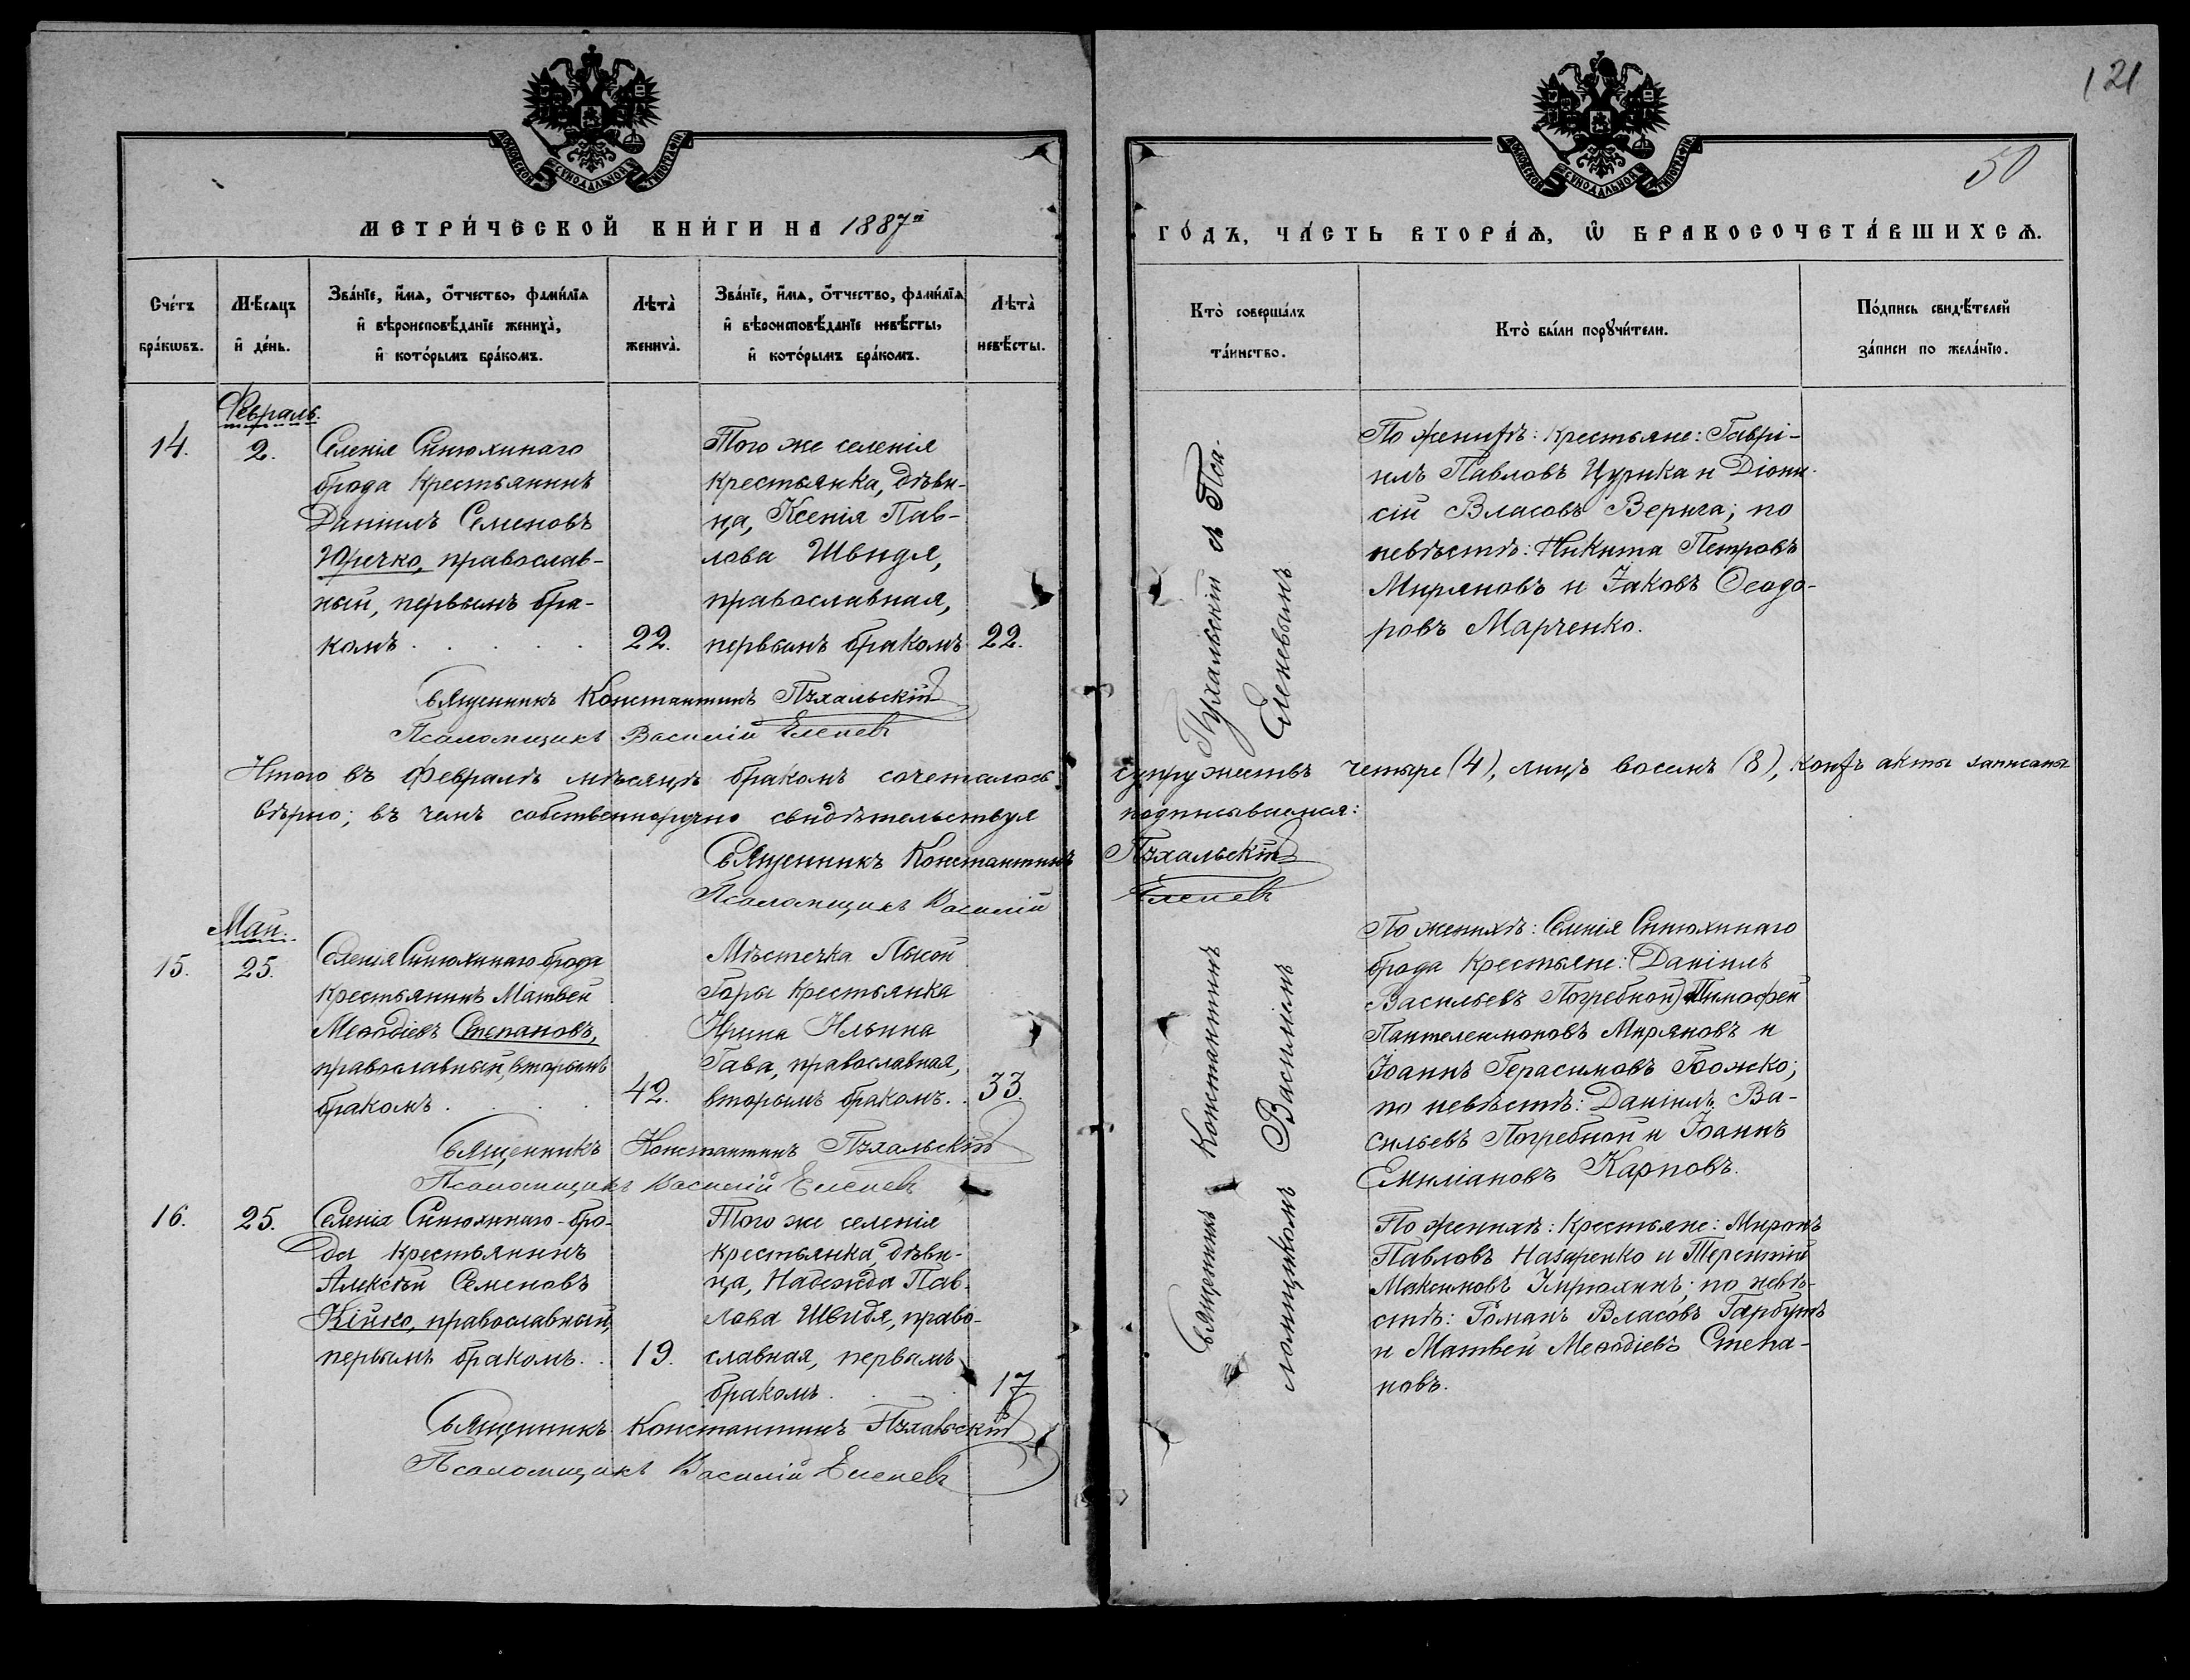 121
50
МОСКОВСКОЙ СѴНОДАЛЬНОЙ ТИПОГРАФІИ
МОСКОВСКОЙ СѴНОДАЛЬНОЙ ТИПОГРАФІИ
МЕТРИ́ЧЕСКОЙ КНИ́ГИ НА 1887й
ГО́ДЪ, ЧА́СТЬ ВТОРА́Ѧ, Ѿ БРАКОСОЧЕТА́ВШИХСѦ.
Сче́тъ бра́кѡвъ.
Мѣ́сѧцъ и҆ де́нь.
Зва́нїе, и҆́мѧ, ѻ҆́тчество, фами́лїѧ и҆ вѣроисповѣ́данїе жениха̀, и҆ кото́рымъ бра́комъ.
Лѣта̀ жениха̀.
Зва́нїе, и҆́мѧ, ѻ҆́тчество, фами́лїѧ и҆ вѣроисповѣ́данїе невѣ́сты, и҆ кото́рымъ бра́комъ.
Лѣта̀ невѣ́сты.
Кто̀ соверша́лъ та́инство.
Кто̀ бы́ли порꙋчи́тели.
По́дпись свидѣ́телей за́писи по жела́нїю.
Февраль.
14.
2.
Селенія Синюхинаго
брода крестьянинъ
Даніилъ Семеновъ
Юречко, православ-
ный, первымъ бра-
комъ
22.
Того же селенія
крестьянка, дѣви-
ца, Ксенія Пав-
лова Швидя,
православная,
первымъ бракомъ
22.
По женихѣ: крестьяне: Гаврі-
илъ Павловъ Цурика и Діони-
сій Власовъ Верига; по
невѣстѣ: Никита Петровъ
Миряновъ и Іаковъ Ѳеодо-
ровъ Марченко.
Священникъ Константинъ Пухальскій
Псаломщикъ Василій Еленевъ
Итого въ Февралѣ мѣсяцѣ бракомъ сочеталось супружествъ четыре (4), лицъ восемь (8), коихъ акты записаны
вѣрно; въ чемъ собственноручно свидѣтельствуя подписываемся:
Священникъ Константинъ Пухальскій
Псаломщикъ Василій Еленевъ
Май.
15.
25.
Селенія Синюхинаго брода
крестьянинъ Матвей
Меѳодіевъ Степановъ,
православный, вторымъ
бракомъ
42.
Мѣстечка Лысой
Горы крестьянка
Ирина Ильина
Гава, православная,
вторымъ бракомъ.
33.
По женихѣ: Селенія Синюхинаго
брода крестьяне: Даніилъ
Васильевъ Погребной, Тимофей
Пантелеимоновъ Миряновъ и
Іоаннъ Герасимовъ Божко;
по невѣстѣ: Даніилъ Ва-
сильевъ Погребной и Іоаннъ
Емиліановъ Карповъ.
Священникъ Константинъ Пухальскій
Псаломщикъ Василій Еленевъ
16.
25.
Селенія Синюхинаго-бро-
да крестьянинъ
Алексѣй Семеновъ
Кійко, православный,
первымъ бракомъ.
19.
Того же селенія
крестьянка, дѣви-
ца, Надежда Пав-
лова Швидя, право-
славная, первымъ
бракомъ.
17
По женихѣ: крестьяне: Миронъ
Павловъ Назаренко и Терентій
Максимовъ; по невѣ-
стѣ: Романъ Власовъ Гарбузъ
и Матвей Меѳодіевъ Степа-
новъ.
Священникъ Константинъ Пухальскій
Псаломщикъ Василій Еленевъ
Священникъ Константинъ Пухальскій съ Пса-
ломщикомъ Василіемъ Еленевымъ